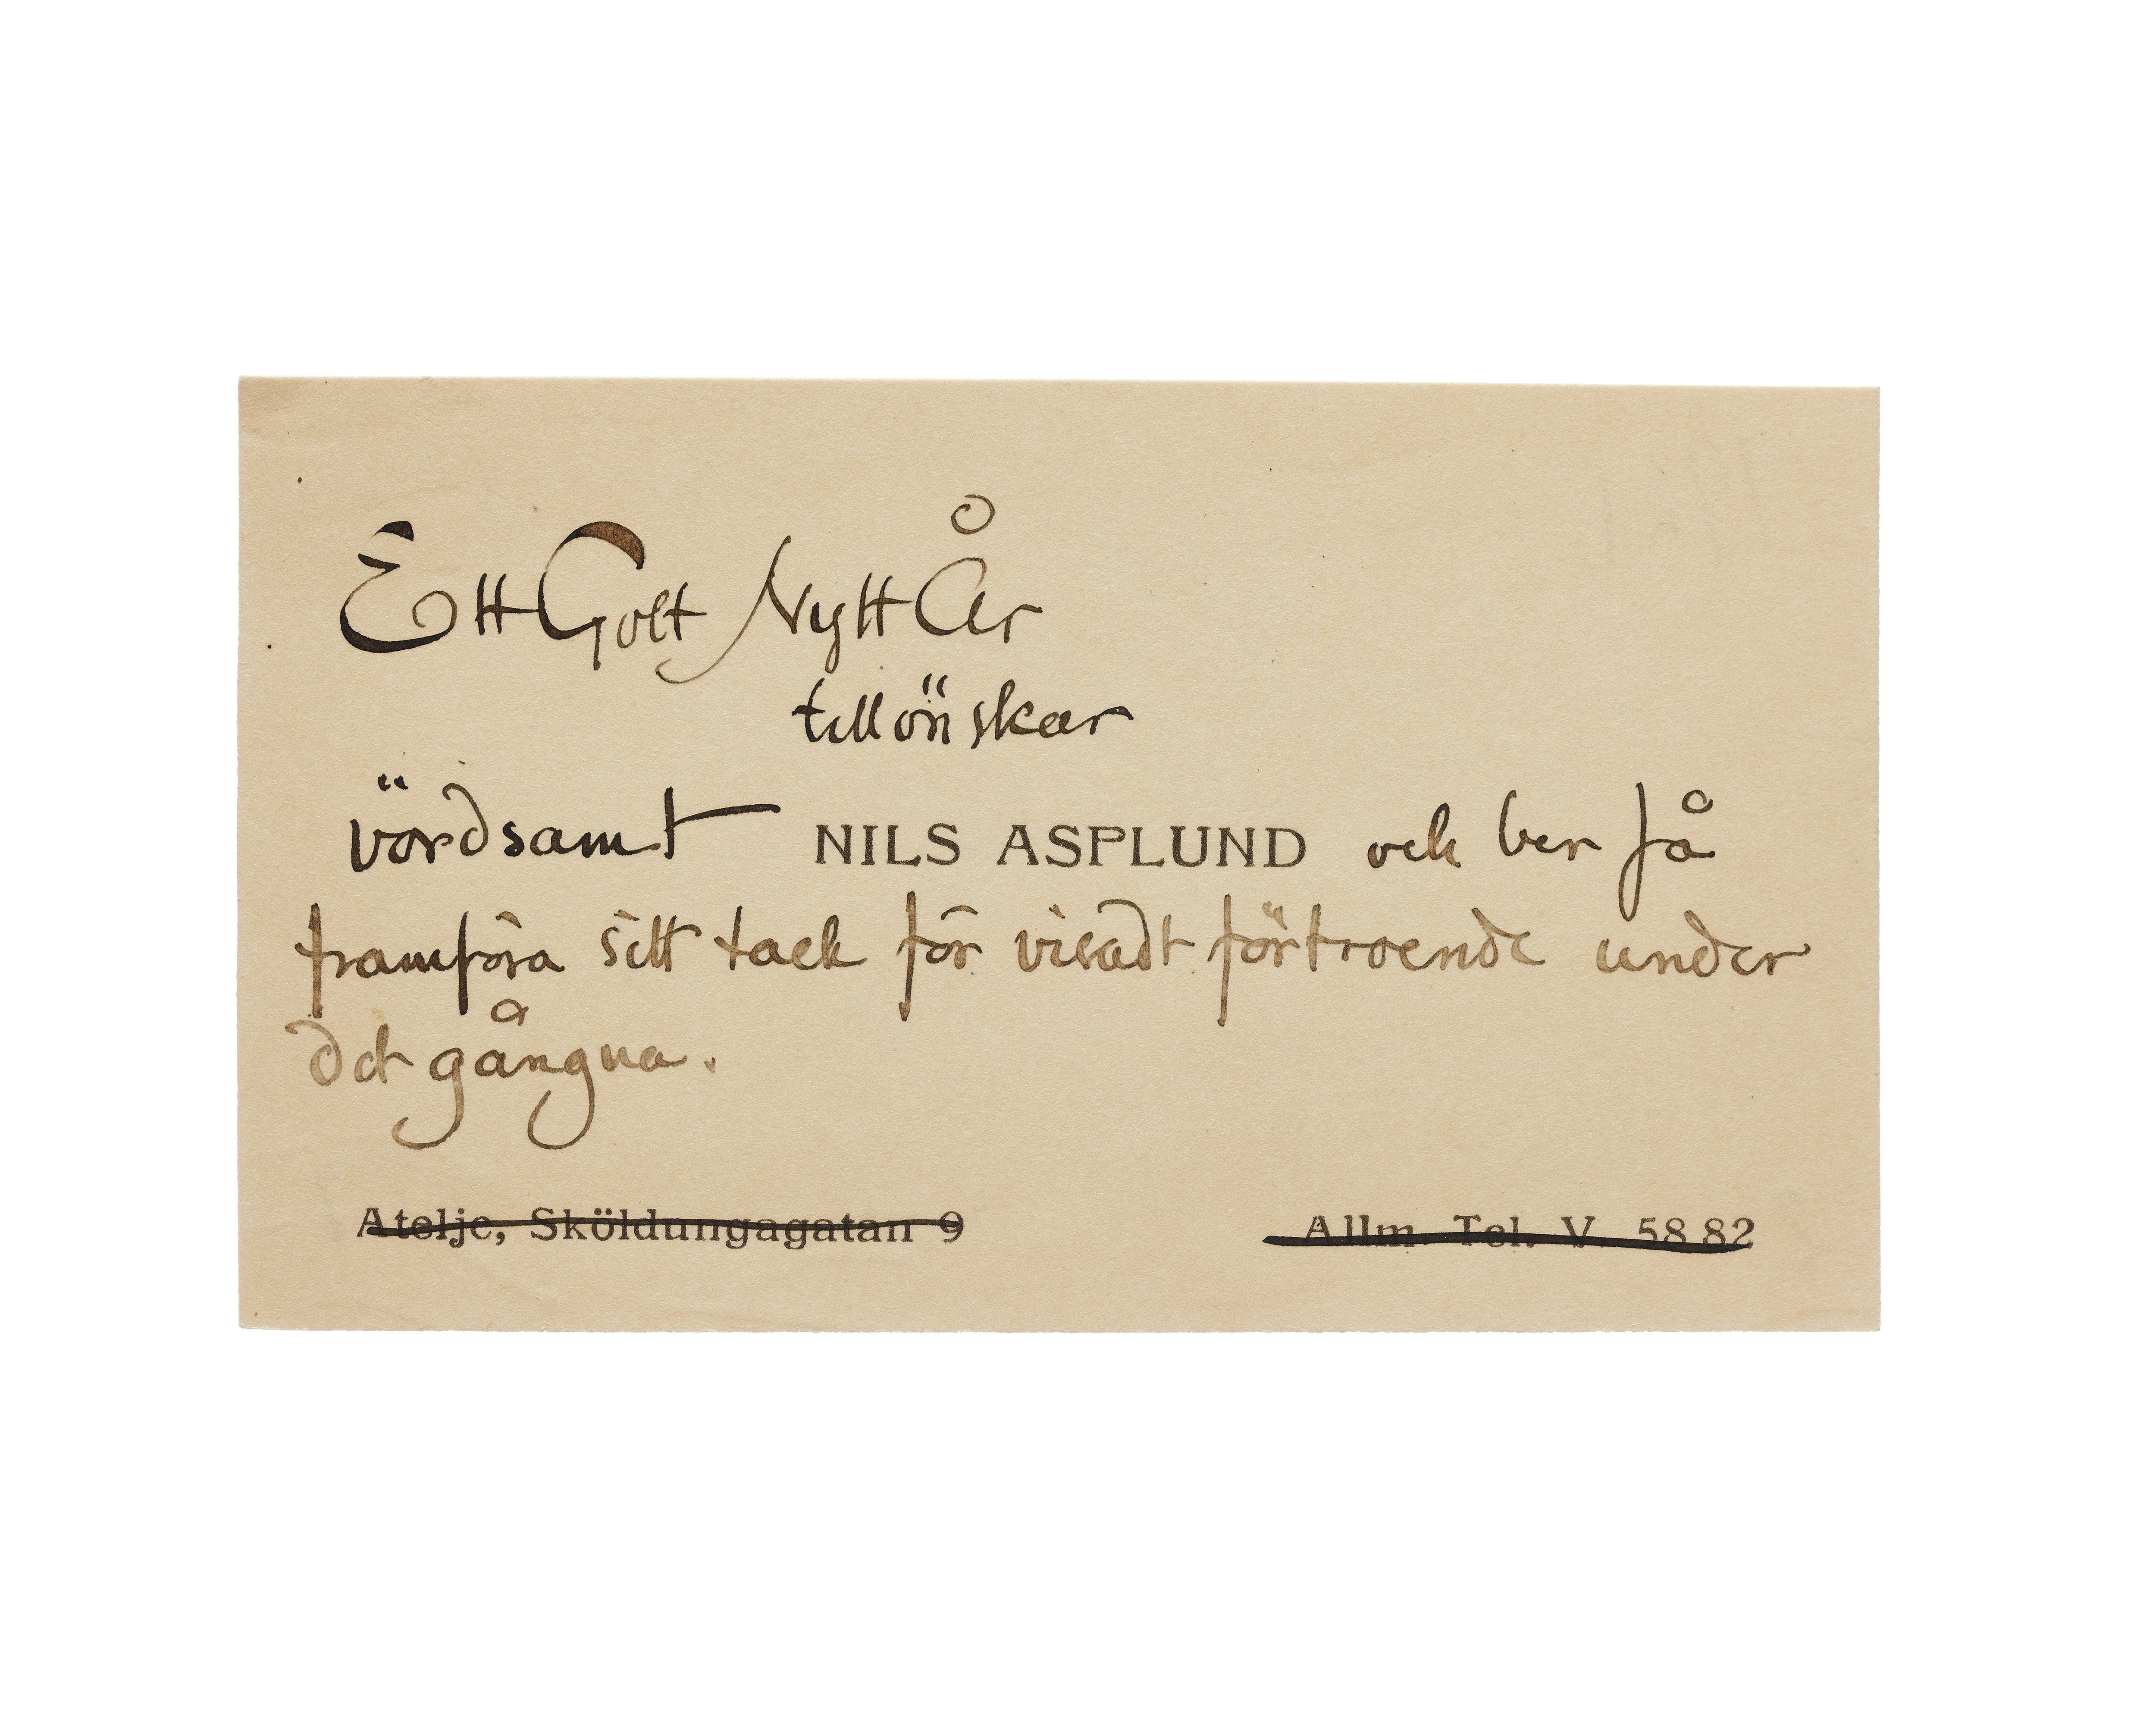 Ett Gott Nytt År
tillönskar
vördsamt NILS ASPLUND och ber få
framföra sitt tack för visadt förtroende under
det gångna.
Atelje, Sköldungagatan 9 Allm. Tel. V. 58 82